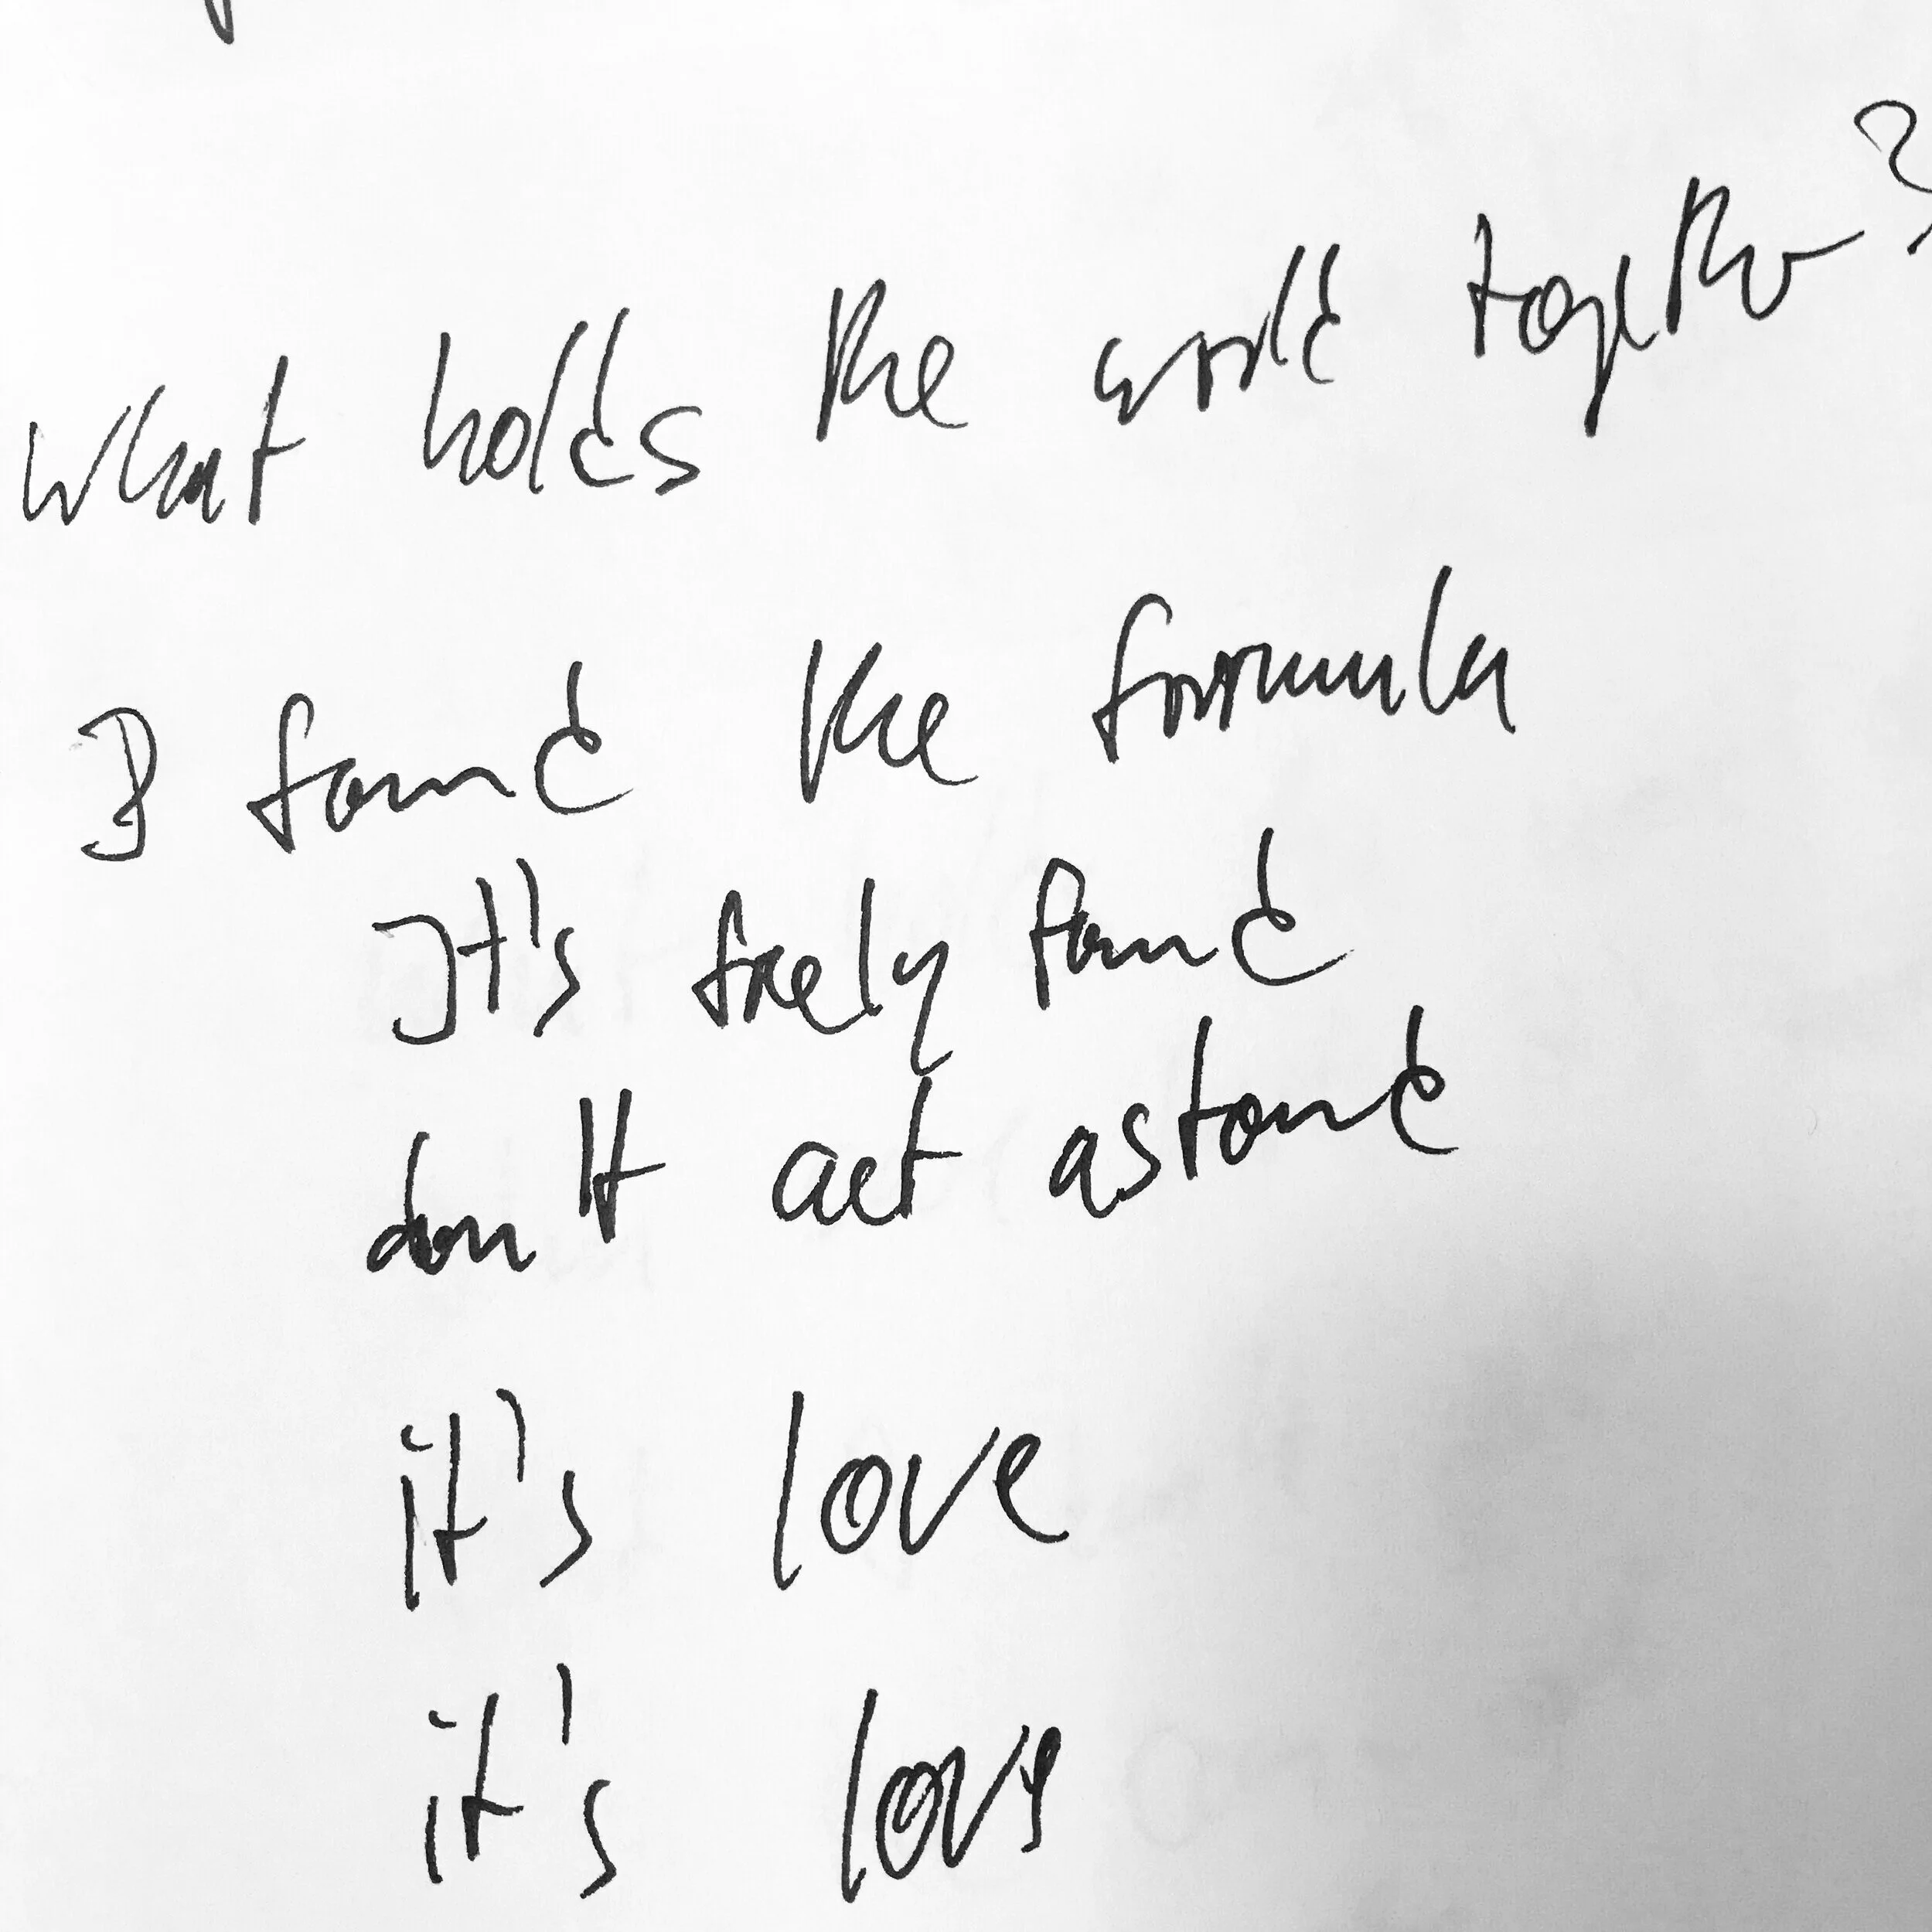 What holds the world together?
I found the formula
It's freely found
don't act astound
it's love
it's love